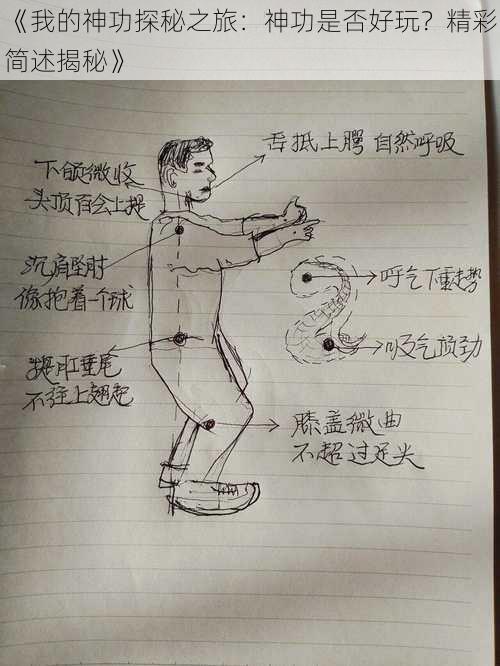 《我的神功探秘之旅：神功是否好玩？精彩
简述揭秘》
舌抵上腭 自然呼吸
下颌微收
头顶百会上提
沉肩坠肘
像抱着一个球
呼气下重趋势
吸气顶劲
提肛垂尾
不往上翘起
膝盖微曲
不超过足尖